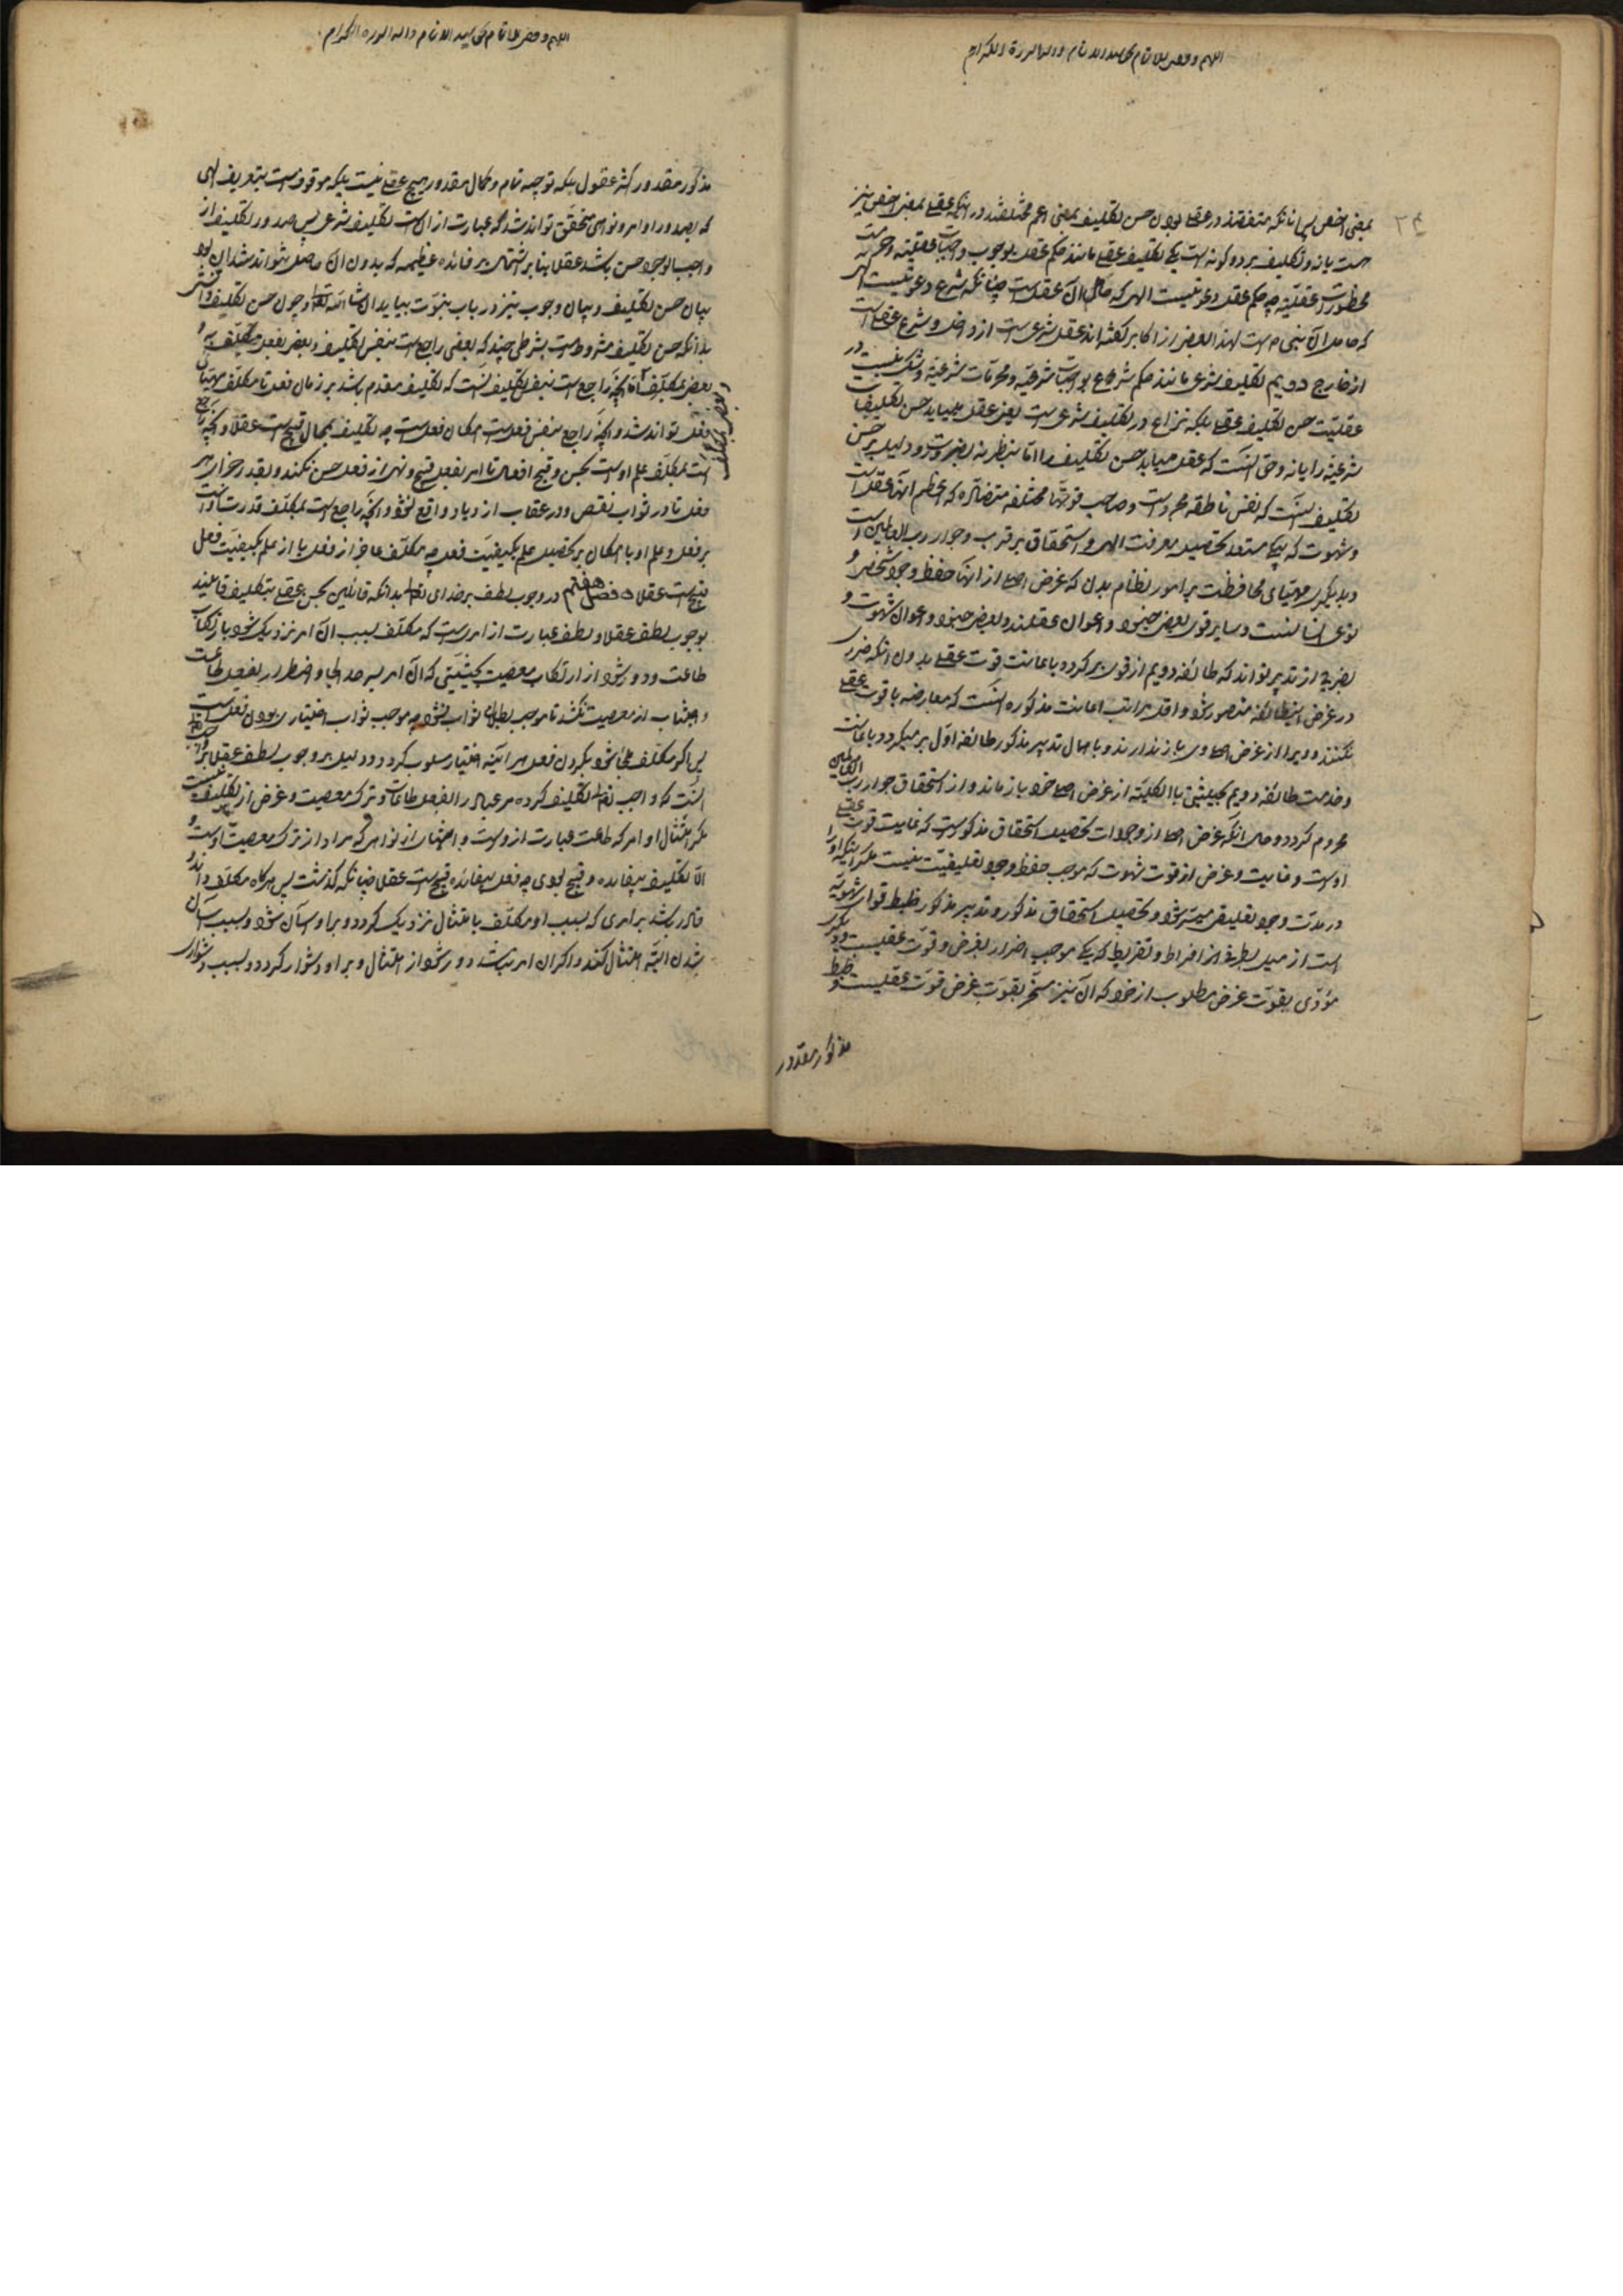 اللهم وفقنی للاتمام بحق سید الانام و آله البررة الکرام
۲۴
بمعنی اخص پس بدانکه متفقند در عقلی بودن حسن تکلیف بمعنی اعم و مختلفند در آنکه عقلی بمعنی اخص نیز
هست یا نه و تکلیف بر دو کونه است یکی تکلیف عقلی مانند حکم عقل بوجوب واجبات عقلیه و حرمت
محظورات عقلیه چه حکم عقل دعوتیست الهی که حامل آن عقل است چنانکه شرع دعوتیست الهی
که حامل آن نبی است لهذا بعضی از اکابر کفته‌اند عقل شرعی است از داخل و شرع عقلی است
از خارج دویم تکلیف شرعی مانند حکم شرع بواجبات شرعیه و محرمات شرعیه و شک نیست در
عقلیت حسن تکلیف عقلی بلکه نزاع در تکلیف شرعی است یعنی عقل می‌یابد حسن تکلیفات
شرعیه را یا نه و حق آنست که عقل می‌یابد حسن تکلیف را اما بنظر نه بضرورت و دلیل بر حسن
تکلیف آنست که نفس ناطقه مجرد است و صاحب قوتهای مختلفه متضاده که اعظم آنها عقل است
و شهوت که یکی مستعد تحصیل معرفت الهی و استحقاق بر قرب و جوار رب العالمین است
و دیگری مهیای محافظت بر امور نظام بدن که غرض اصلی از آنها حفظ وجود شخصی و
نوعی انسانست و سایر قوی بعضی جنود و اعوان عقلند و بعضی جنود و اعوان شهوت و
بضرورت از تدبیر تواند که طائفه دویم از قوی بر کرده باعانت قوت عقلی بدون آنکه ضرر
در غرض این طائفه متصور شود و اقل مراتب اعانت مذکوره آنست که معارضه با قوت عقلی
نکنند و ویرا از غرض اصلی وی باز ندارند و باهمال تدبیر مذکور طائفه اول بر میکردد باعانت
و خدمت طائفه دویم بحیثیتی که بالکلیه از غرض اصلی خود باز ماند و از استحقاق جوار رب العالمین
محروم کردد و حال آنکه غرض اصلی از وجودات تحصیل استحقاق مذکور است که غایت قوت عقلی
اوست و غایت و غرض از قوت شهوت که موجب حفظ وجود تعلیقیت نیست مکر اینکه او را
در مدت وجود تعلیقی میسر شود تحصیل استحقاق مذکور و تدبیر مذکور ضبط قوای شهویه
است از میل بطرف افراط و تفریط که یکی موجب اضرار بغرض قوت عقلیست و دیکر
مؤدی بفوت غرض مطلوب از خود که آن نیز منجر بفوت غرض قوت عقلیست و ضبط
مذکور مقدور
اللهم وفقنی للاتمام بحق سید الانام و آله البررة الکرام
مذکور مقدور اکثر عقول بلکه توجیه تمام و کمال مقدور هیچ عقلی نیست بلکه موقوفست بتعریف الهی
که بصدور اوامر و نواهی متحقق تواند شد که عبارت از آنست تکلیف شرعی پس صدور تکلیف از
واجب الوجود حسن باشد عقلا بنابر اشتمال بر فائده عظیمه که بدون آن حاصل نتواند شد این بود
بیان حسن تکلیف و بیان وجوب نیز در باب نبوت بیاید ان شاء الله تعالی و چون حسن تکلیف دانستی
بدانکه حسن تکلیف مشروطست بشرطی چند که بعضی راجع است بنفس تکلیف و بعضی بفعل مکلف به و
بعضی بمکلف اما آنچه راجع است بنفس تکلیف آنست که تکلیف مقدم باشد بر زمان فعل تا مکلف مهیای
فعل تواند شد و آنچه راجع بنفس فعلست امکان فعل است چه تکلیف بمحال قبیح است عقلا و آنچه راجع
است بمکلف علم اوست بحسن و قبح افعال تا امر بفعل قبیح و نهی از فعل حسن نکند و بقدر جزای هر
فعل تا در ثواب نقص و در عقاب ازدیاد واقع نشود و آنچه راجع است بمکلف قدرت اوست
بر فعل و علم او یا امکان بر تحصیل علم بکیفیت فعل چه مکلف عاجز از فعل یا از علم بکیفیت فعل
قبیح است عقلا فصل هفتم در وجوب لطف بر خدای تعالی بدانکه قائلین بحسن عقلی تکلیف قائلند
بوجوب لطف عقلا و لطف عبارت از امریست که مکلف بسبب آن امر نزدیک شود بارتکاب
طاعت و دور شود از ارتکاب معصیت بحیثیتی که آن امر بسر حد الجا و اضطرار بفعل طاعت
و اجتناب از معصیت نکشد تا موجب بطلان ثواب نشود چه موجب ثواب اختیاری بودن فعل است
پس اکر مکلف ملجا شود بکردن فعل هر آینه اختیار مسلوب کردد و دلیل بر وجوب لطف عقلا بر واجب تعالی
آنست که واجب تعالی تکلیف کرده مر عباد را بفعل طاعات و ترک معصیت و غرض از تکلیف نیست
مکر امتثال اوامر که طاعت عبارت از وست و اجتناب از نواهی که مراد از ترک معصیت اوست و
الا تکلیف بیفایده و قبیح بودی چه فعل بیفائده قبیح است عقلا چنانکه کذشت پس هرکاه مکلف داند و
قادر باشد بر امری که بسبب او مکلف بامتثال نزدیک کردد و بر او آسان شود و بسبب آسان
شدن البته امتثال کند و اکر آن امر نباشد دور شود از امتثال و بر او دشوار کردد و بسبب دشواری